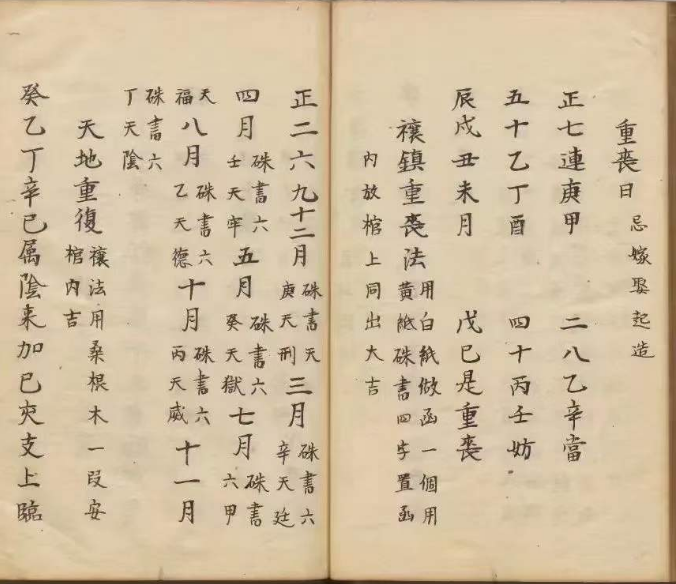 重喪日 忌嫁娶起造
正七連庚甲 二八乙辛當
五十乙丁酉 四十丙壬妨
辰戌丑未月 戊巳是重喪
禳鎮重喪法 用白紙做函一個用黄紙硃書四字置函
内放棺上同出大吉
正二六九十二月 硃書天庚天刑 三月 硃書六辛天廷
四月 硃書六壬天牢 五月 硃書六癸天獄 七月 硃書六甲
天福 八月 硃書六乙天德 十月 硃書六丙天威 十一月
硃書六丁天陰
天地重復 禳法用桑根木一段安棺内吉
癸乙丁辛巳属陰来加巳夾支上臨